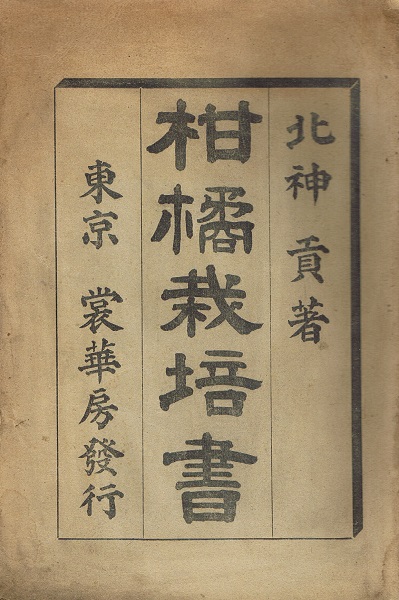 北神 貢著
柑橘栽培書
東京 裳華房發行